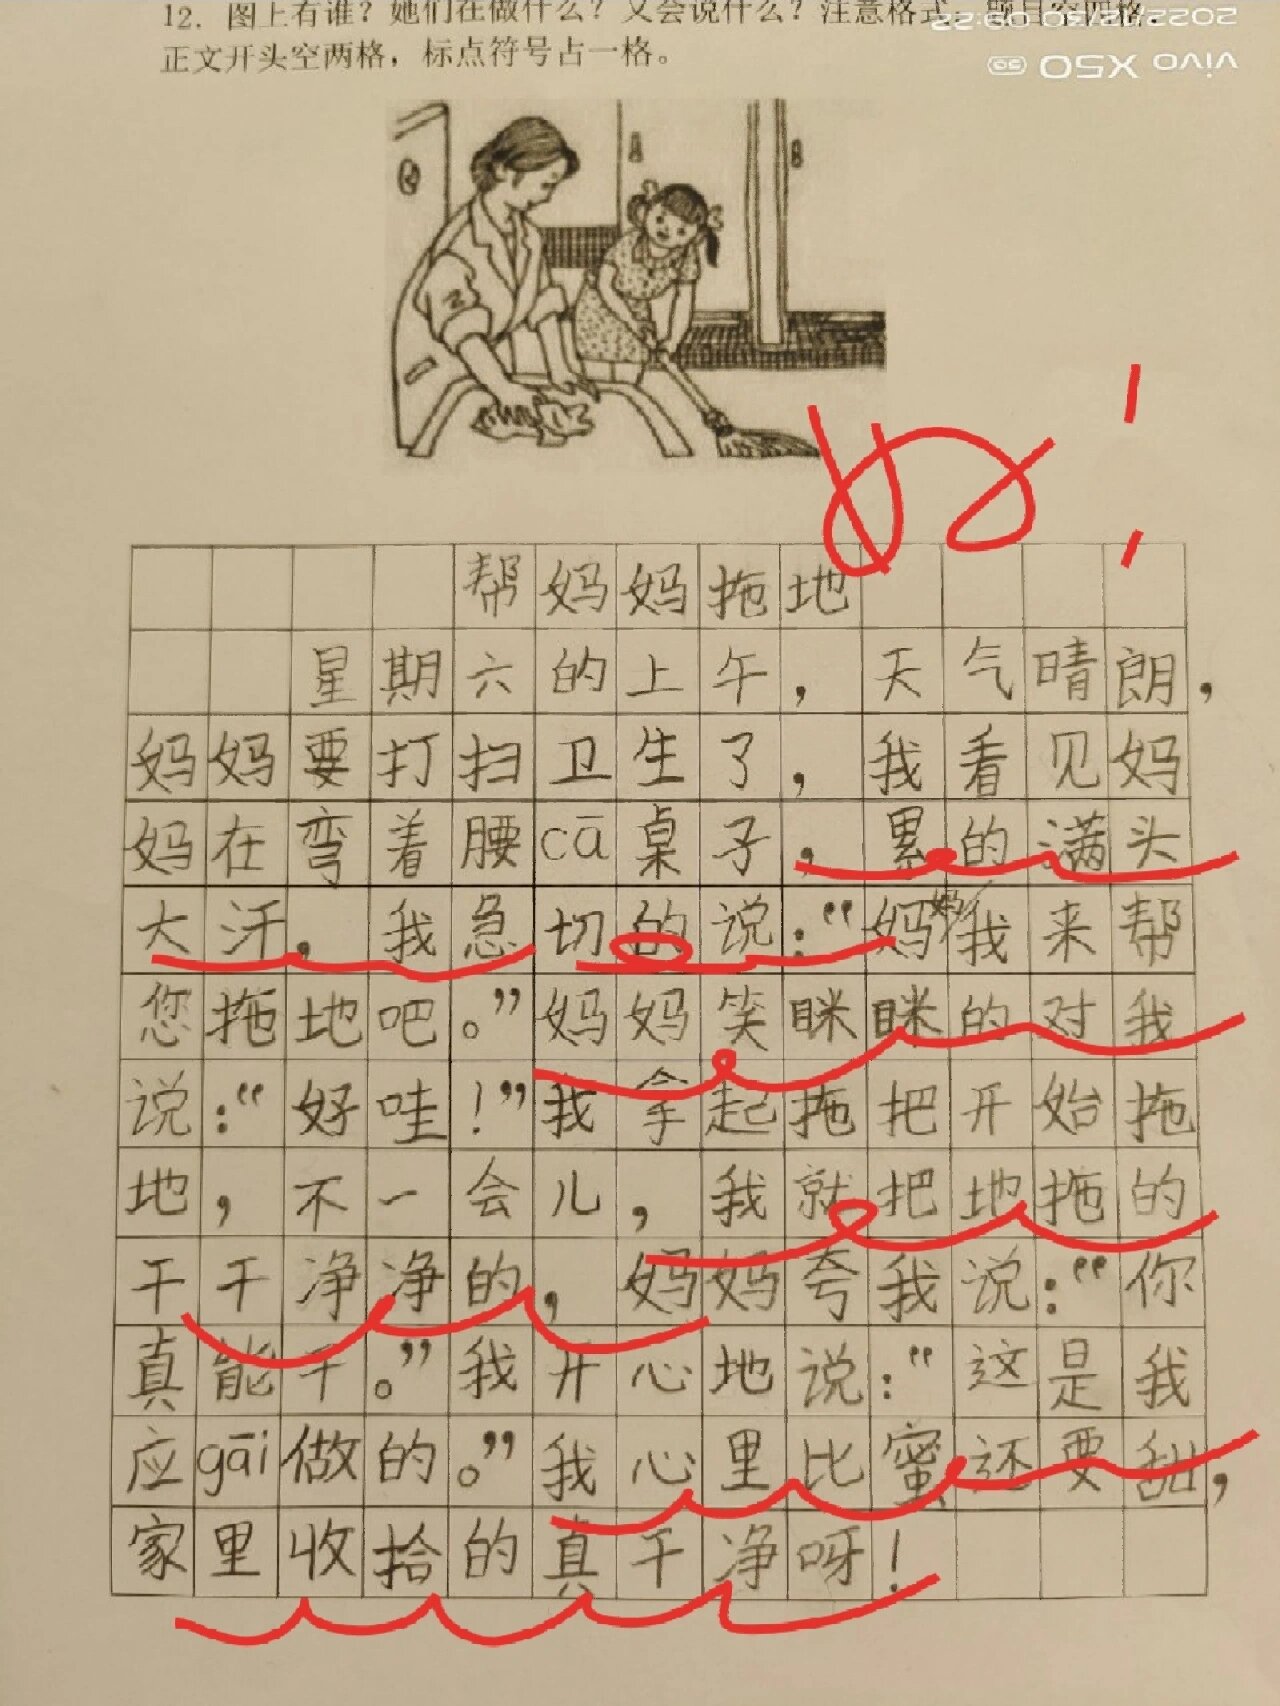 12. 图上有谁？她们在做什么？又会说什么？注意格式，题目空四格，
正文开头空两格，标点符号占一格。
2022/12/30 09:22
vivo X50
好！
帮妈妈拖地
星期六的上午，天气晴朗，
妈妈要打扫卫生了，我看见妈
妈在弯着腰cā桌子，累的满头
大汗，我急切的说：“妈妈我来帮
您拖地吧。”妈妈笑眯眯的对我
说：“好哇！”我拿起拖把开始拖
地，不一会儿，我就把地拖的
干干净净的，妈妈夸我说：“你
真能干。”我开心地说：“这是我
应gāi做的。”我心里比蜜还要甜，
家里收拾的真干净呀！